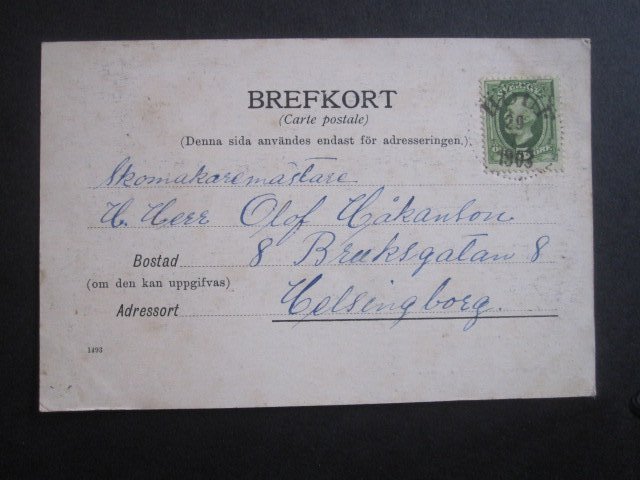 BREFKORT
(Carte postale)
(Denna sida användes endast för adresseringen.)
Skomakaremästare
H. Herr Olof Håkanson
Bostad 8 Bruksgatan 8
(om den kan uppgifvas)
Adressort Helsingborg.
1493
SVERIGE
20
1903